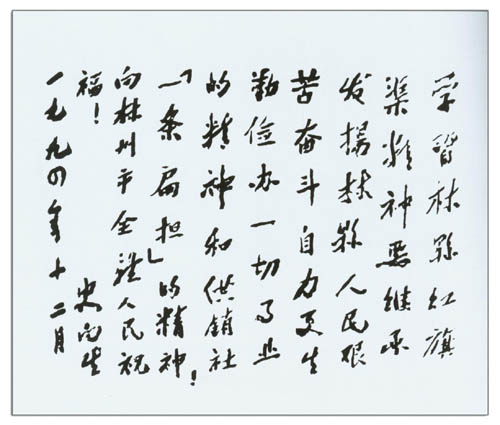 学習林縣红旗
渠精神要继承
发揚林縣人民艰
苦奋斗自力更生
勤俭办一切事业
的精神和供销社
「一条扁担」的精神!
向林州市全體人民祝
福!
史向生
一九九四年十二月